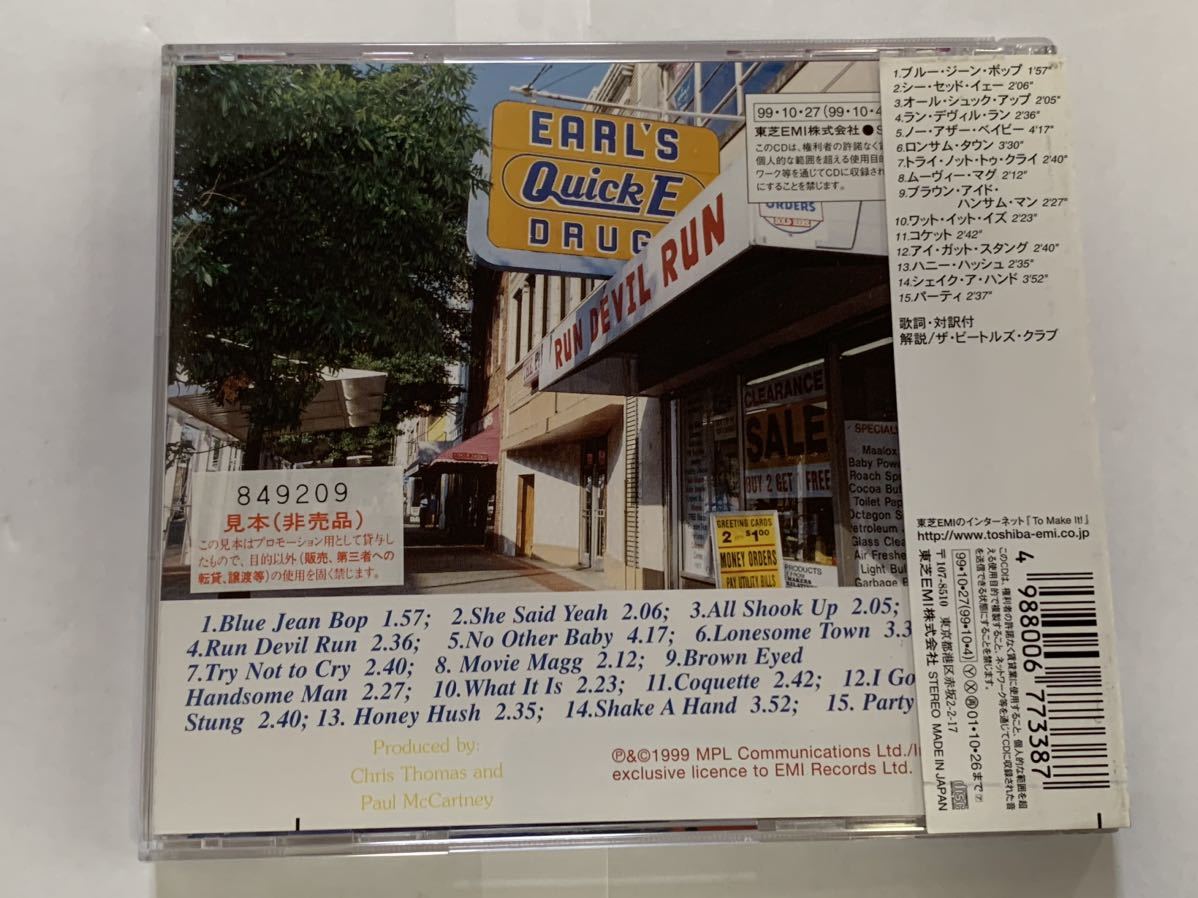 EARL'S
Quick E
DRUG
RUN DEVIL RUN
ORDERS
99・10・27(99・10・4
東芝EMI株式会社●S
このCDは、権利者の許諾なく賃
個人的な範囲を超える使用目的
ワーク等を通じてCDに収録され
にすることを禁じます。
CLEARANCE
SALE
BUY 2 GET FREE
SPECIAL
Maalox
Baby Pow
Roach Sp
Cocoa Bu
Toilet Pap
Octagon S
Petroleum J
Glass Clea
Air Freshe
Light Bul
Garbage B
GREETING CARDS
2 $1.00
MONEY ORDERS
PAY UTILITY BILLS
PRODUCTS
849209
見本(非売品)
この見本はプロモーション用として貸与し
たもので、目的以外(販売、第三者への
転貸、譲渡等)の使用を固く禁じます。
1.Blue Jean Bop 1.57; 2.She Said Yeah 2.06; 3.All Shook Up 2.05;
4.Run Devil Run 2.36; 5.No Other Baby 4.17; 6.Lonesome Town 3.3
7.Try Not to Cry 2.40; 8. Movie Magg 2.12; 9.Brown Eyed
Handsome Man 2.27; 10.What It Is 2.23; 11.Coquette 2.42; 12.I Go
Stung 2.40; 13. Honey Hush 2.35; 14.Shake A Hand 3.52; 15. Party
Produced by:
Chris Thomas and
Paul McCartney
℗&©1999 MPL Communications Ltd./In
exclusive licence to EMI Records Ltd.
1.ブルー・ジーン・ボップ 1'57"
2.シー・セッド・イェー 2'06"
3.オール・シュック・アップ 2'05"
4.ラン・デヴィル・ラン 2'36"
5.ノー・アザー・ベイビー 4'17"
6.ロンサム・タウン 3'30"
7.トライ・ノット・トゥ・クライ 2'40"
8.ムーヴィー・マグ 2'12"
9.ブラウン・アイド・
ハンサム・マン 2'27"
10.ワット・イット・イズ 2'23"
11.コケット 2'42"
12.アイ・ガット・スタング 2'40"
13.ハニー・ハッシュ 2'35"
14.シェイク・ア・ハンド 3'52"
15.パーティ 2'37"
歌詞・対訳付
解説/ザ・ビートルズ・クラブ
東芝EMIのインターネット『To Make It!』
http://www.toshiba-emi.co.jp
4 988006 773387
このCDは、権利者の許諾なく賃貸業に使用すること、個人的な範囲を超
える使用目的で複製すること、ネットワーク等を通じてCDに収録された音
を送信できる状態にすることを禁じます。
99・10・27(99・10・4) Ⓨ Ⓧ ㊢ 01・10・26まで
〒107-8510 東京都港区赤坂2-2-17
東芝EMI株式会社 STEREO MADE IN JAPAN
disc